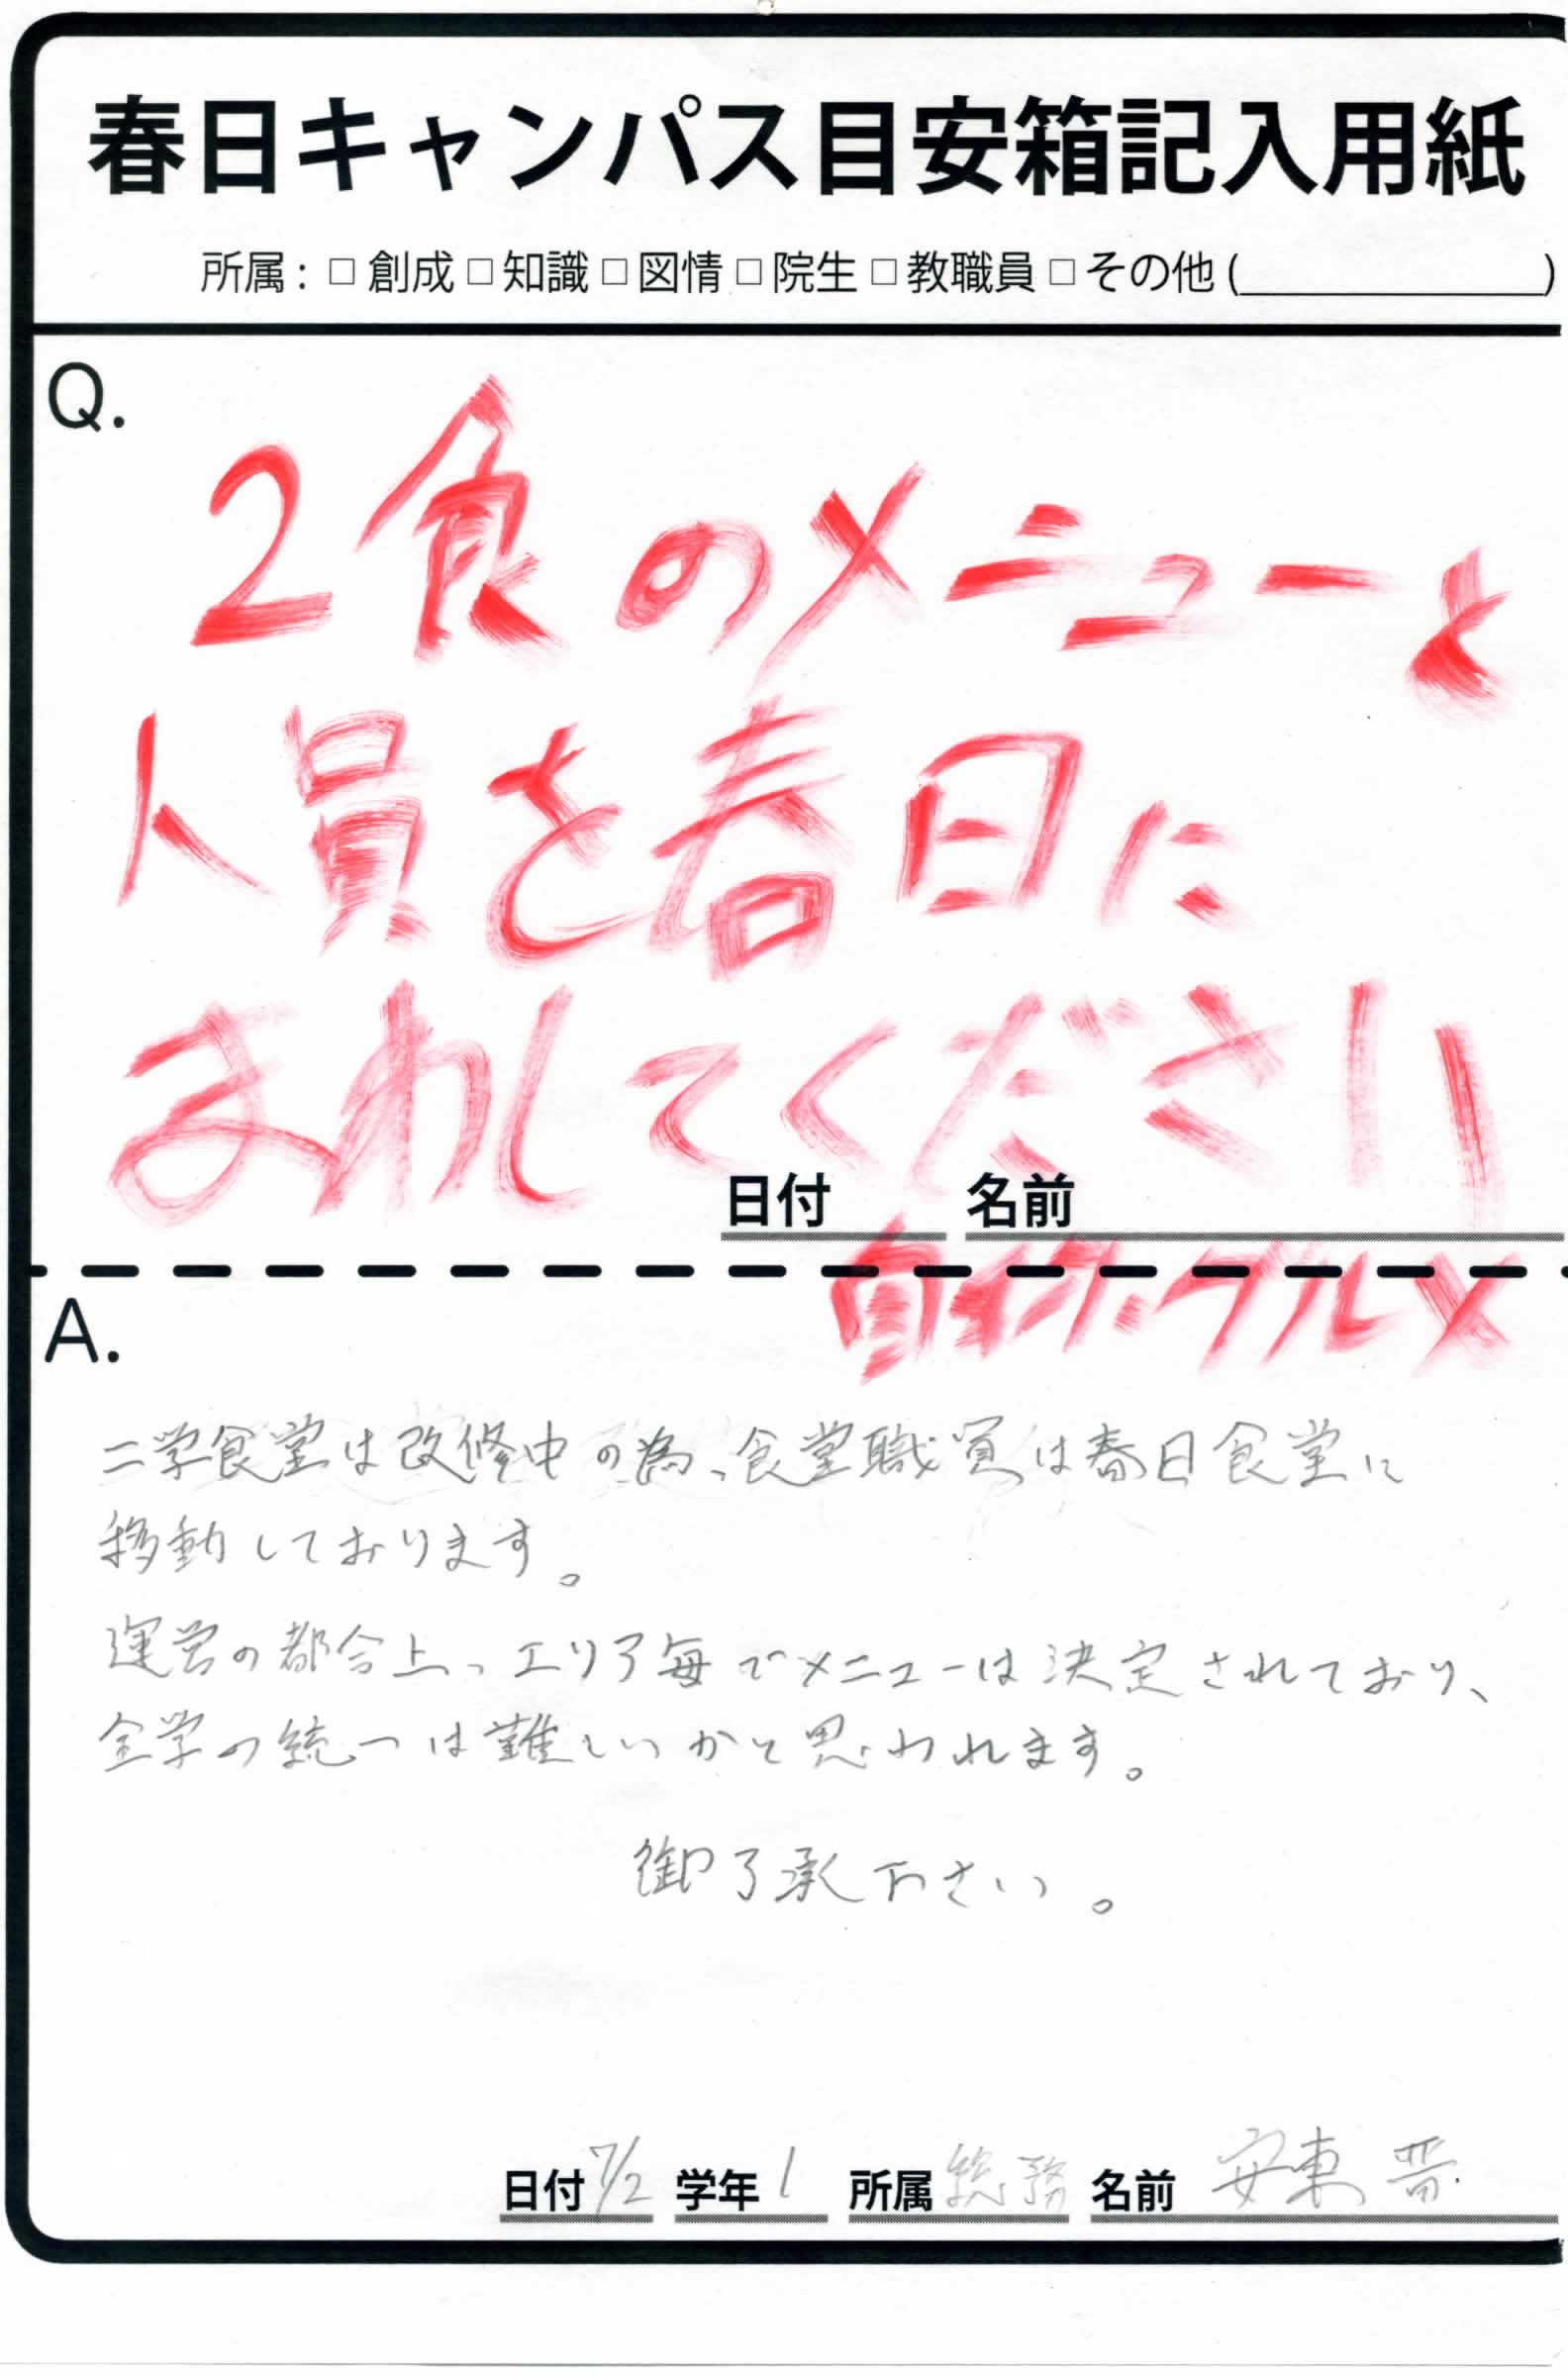 春日キャンパス目安箱記入用紙
所属: □ 創成 □ 知識 □ 図情 □ 院生 □ 教職員 □ その他 ( )
Q.
2食のメニューと
人員を春日に
まわしてください
日付 名前
グルメ
A.
二学食堂は改修中の為、食堂職員は春日食堂に
移動しております。
運営の都合上、エリア毎でメニューは決定されており、
全学の統一は難しいかと思われます。
御了承下さい。
日付 7/2 学年 1 所属 総務 名前 安東 晋